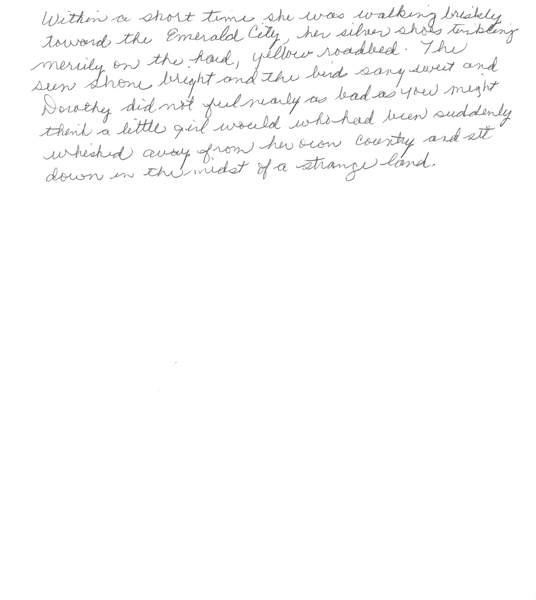 Within a short time she was walking briskly
toward the Emerald City, her silver shoes tinkling
merrily on the hard, yellow roadbed. The
sun shone bright and the bird sang sweet and
Dorothy did not feel nearly as bad as you might
think a little girl would who had been suddenly
whished away from her own country and set
down in the midst of a strange land.